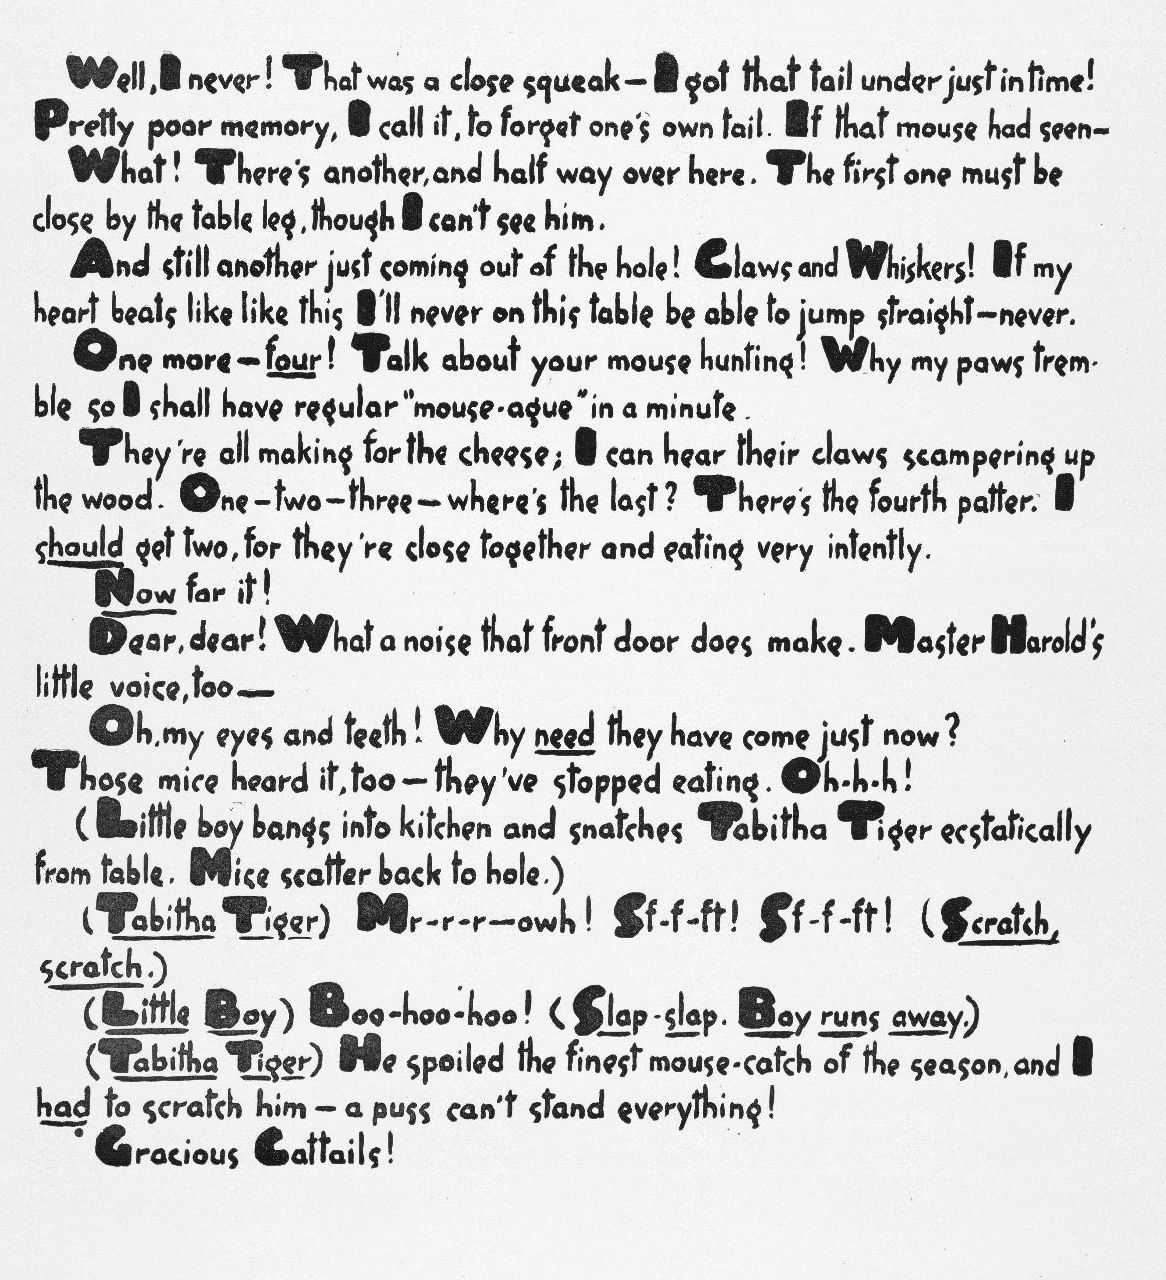 Well, I never! That was a close squeak — I got that tail under just in time!
Pretty poor memory, I call it, to forget one's own tail. If that mouse had seen—
What! There's another, and half way over here. The first one must be
close by the table leg, though I can't see him.
And still another just coming out of the hole! Claws and Whiskers! If my
heart beats like like this I'll never on this table be able to jump straight—never.
One more—four! Talk about your mouse hunting! Why my paws trem-
ble so I shall have regular "mouse-ague" in a minute.
They're all making for the cheese; I can hear their claws scampering up
the wood. One—two—three—where's the last? There's the fourth patter. I
should get two, for they're close together and eating very intently.
Now for it!
Dear, dear! What a noise that front door does make. Master Harold's
little voice, too—
Oh, my eyes and teeth! Why need they have come just now?
Those mice heard it, too — they've stopped eating. Oh-h-h!
(Little boy bangs into kitchen and snatches Tabitha Tiger ecstatically
from table. Mice scatter back to hole.)
(Tabitha Tiger) Mr-r-r—owh! Sf-f-ft! Sf-f-ft! (Scratch,
scratch.)
(Little Boy) Boo-hoo-hoo! (Slap-slap. Boy runs away.)
(Tabitha Tiger) He spoiled the finest mouse-catch of the season, and I
had to scratch him — a puss can't stand everything!
Gracious Cattails!